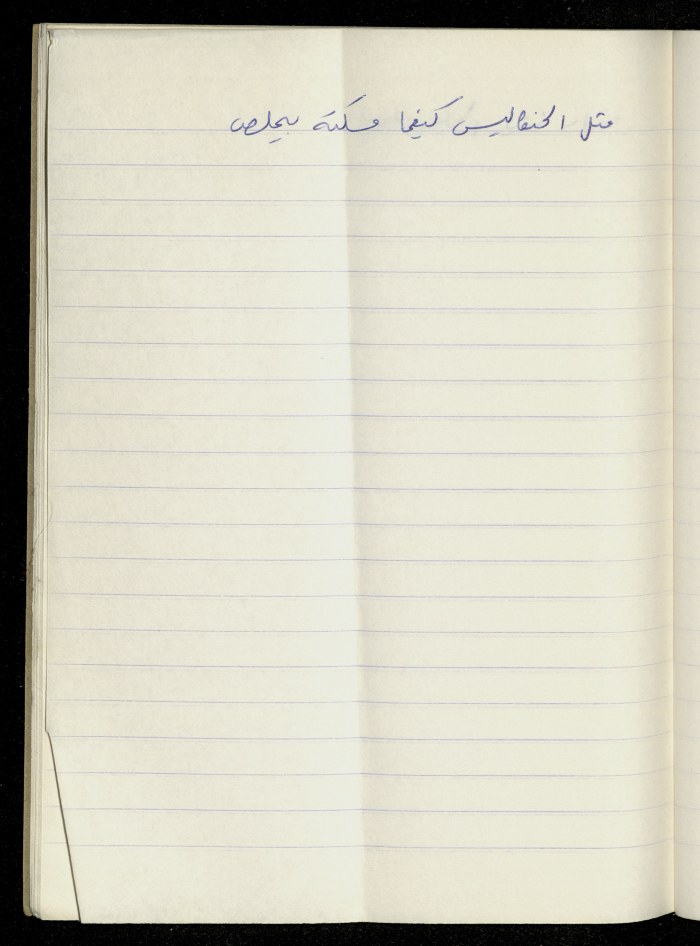 مثل الحنقاليس كيفما مسكته بيملص